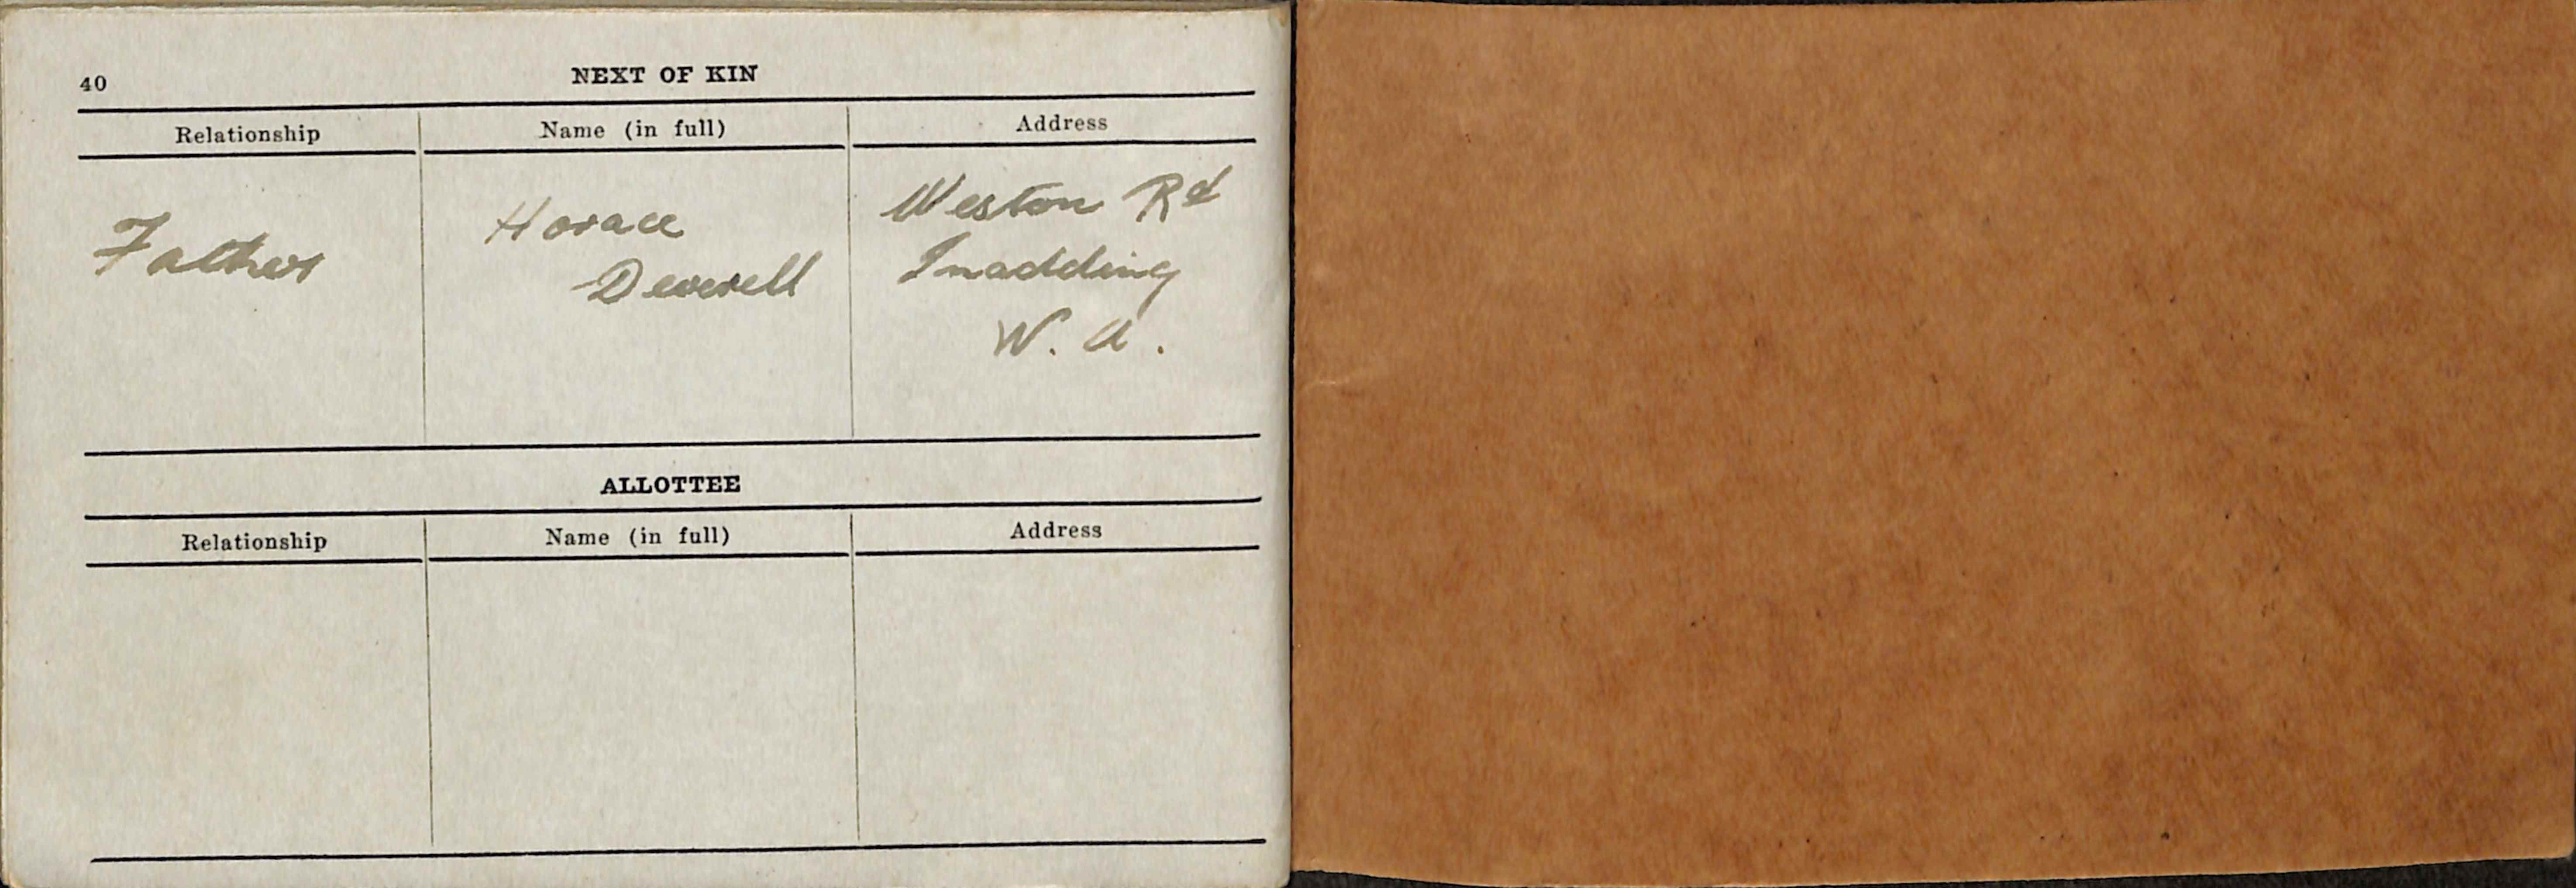 40
NEXT OF KIN
Relationship Name (in full) Address
Father
Horace
Deverell
Weston Rd
Inadding
W. A.
ALLOTTEE
Relationship Name (in full) Address